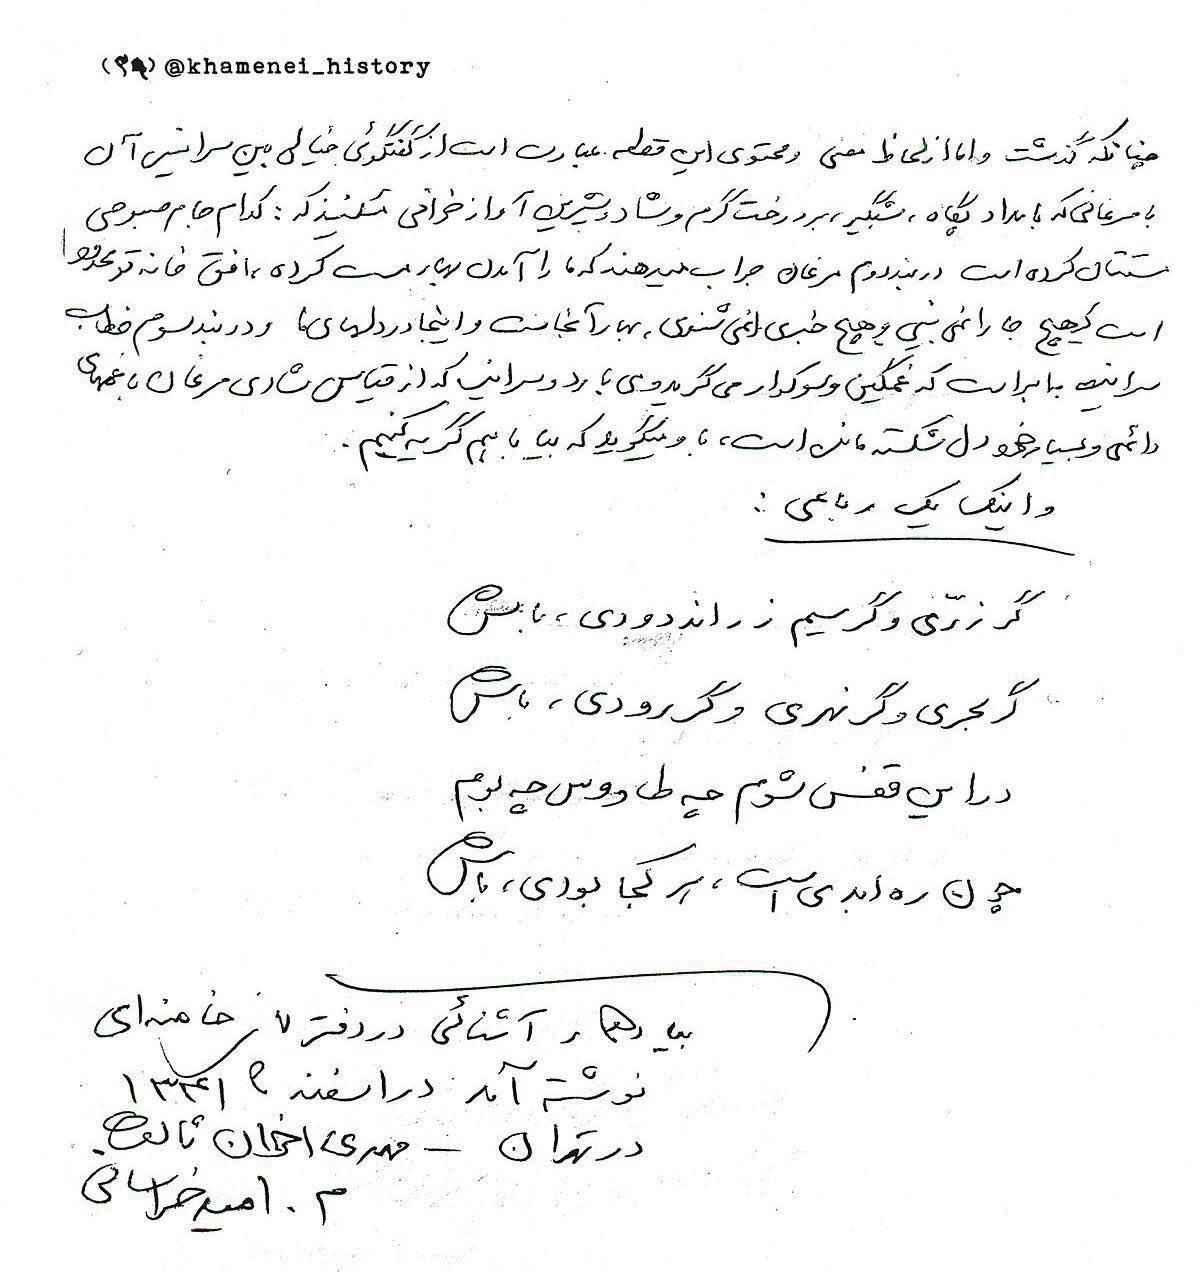 @khamenei_history
چنانکه گذشت و اما از لحاظ معنی و محتوی این قطعه عبارت است از گفتگوئی خیالی بین سراینده‌ی آن
با مرغانی که بامداد پگاه، شبگیر، بر درخت گرم و شاد و شیرین آواز خوانی میکنند که: کدام جام صبوحی
مستتان کرده است در بند دوم مرغان جواب میدهند که ما را آمدن بهار مست کرده، افق خانه تو محدود
است که هیچ جا را نمی بینی و هیچ خبری نمی شنوی، بهار آنجاست و اینجا در دلهای ما و در بند سوم خطاب
سراینده با ابر است که غمگین و سوگوار می گرید و می بارد و سراینده که از قیاس شادی مرغان با غمهای
دائمی و بسیار خود دل شکسته مانده است، با او میگوید که بیا با هم گریه کنیم.
و اینک یک رباعی:
گر زرّی و گر سیم زر اندودی، باش
گر بحری و گر نهری و گر رودی، باش
در این قفس شوم چه طاووس چه بوم
چون ره ابدی است، هر کجا بودی، باش
بیادگار آشنائی در دفتر آقای خامنه‌ای
نوشته آمد در اسفند ماه ۱۳۴۱
در تهران – مهدی اخوان ثالث
م. امید خراسانی